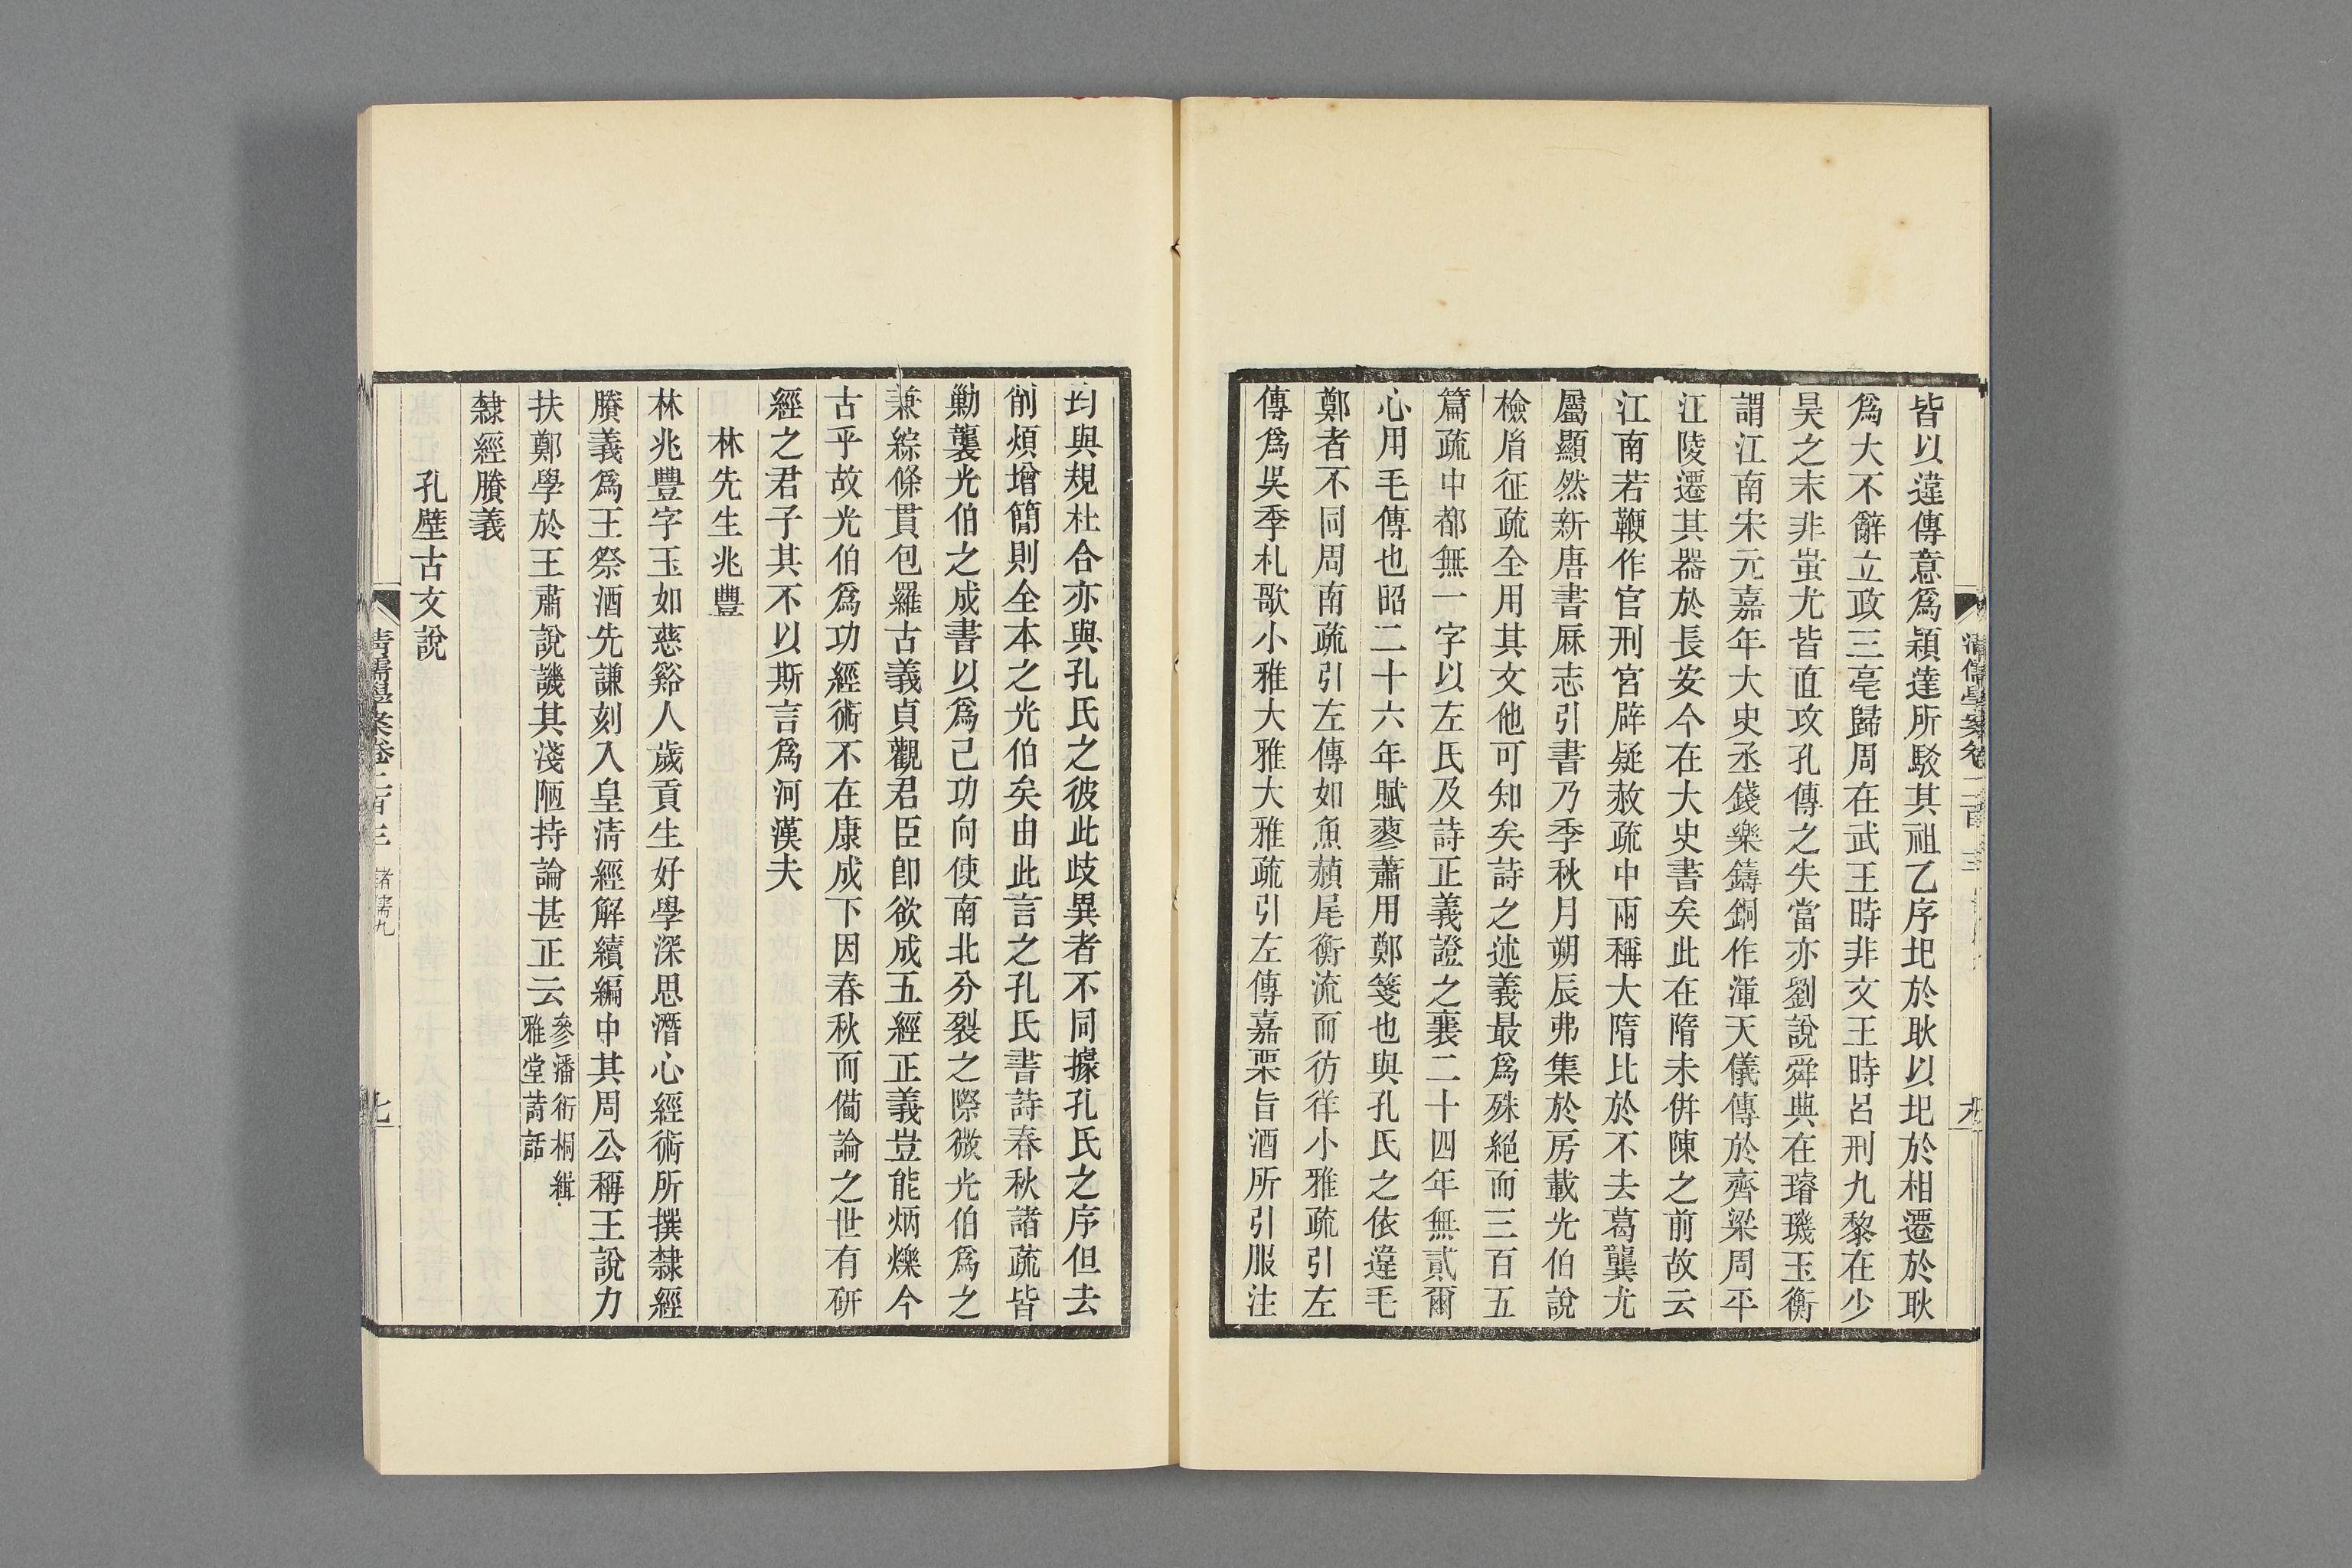 皆以違傳意爲穎達所駁其祖乙序圯於耿以圯於相遷於耿
爲大不辭立政三亳歸周在武王時非文王時呂刑九黎在少
昊之末非蚩尤皆直攻孔傳之失當亦劉說舜典在璿璣玉衡
謂江南宋元嘉年大史丞錢樂鑄銅作渾天儀傳於齊梁周平
江陵遷其器於長安今在大史書矣此在隋未併陳之前故云
江南若鞭作官刑宮辟疑赦疏中兩稱大隋比於不去葛龔尤
屬顯然新唐書厤志引書乃季秋月朔辰弗集於房載光伯說
檢胤征疏全用其文他可知矣詩之述義最爲殊絕而三百五
篇疏中都無一字以左氏及詩正義證之襄二十四年無貳爾
心用毛傳也昭二十六年賦蓼蕭用鄭箋也與孔氏之依違毛
鄭者不同周南疏引左傳如魚赬尾衡流而彷徉小雅疏引左
傳爲吳季札歌小雅大雅大雅疏引左傳嘉栗旨酒所引服注
均與規杜合亦與孔氏之彼此歧異者不同據孔氏之序但去
削煩增簡則全本之光伯矣由此言之孔氏書詩春秋諸疏皆
勦襲光伯之成書以爲己功向使南北分裂之際微光伯爲之
兼綜條貫包羅古義貞觀君臣卽欲成五經正義豈能炳爍今
古乎故光伯爲功經術不在康成下因春秋而備論之世有研
經之君子其不以斯言爲河漢夫
林先生兆豐
林兆豐字玉如慈谿人歲貢生好學深思潛心經術所撰隸經
賸義爲王祭酒先謙刻入皇淸經解續編中其周公稱王說力
扶鄭學於王肅說譏其淺陋持論甚正云
參潘衍桐緝
雅堂詩話
隸經賸義
孔壁古文說
清儒學案卷二百三
諸儒九
七